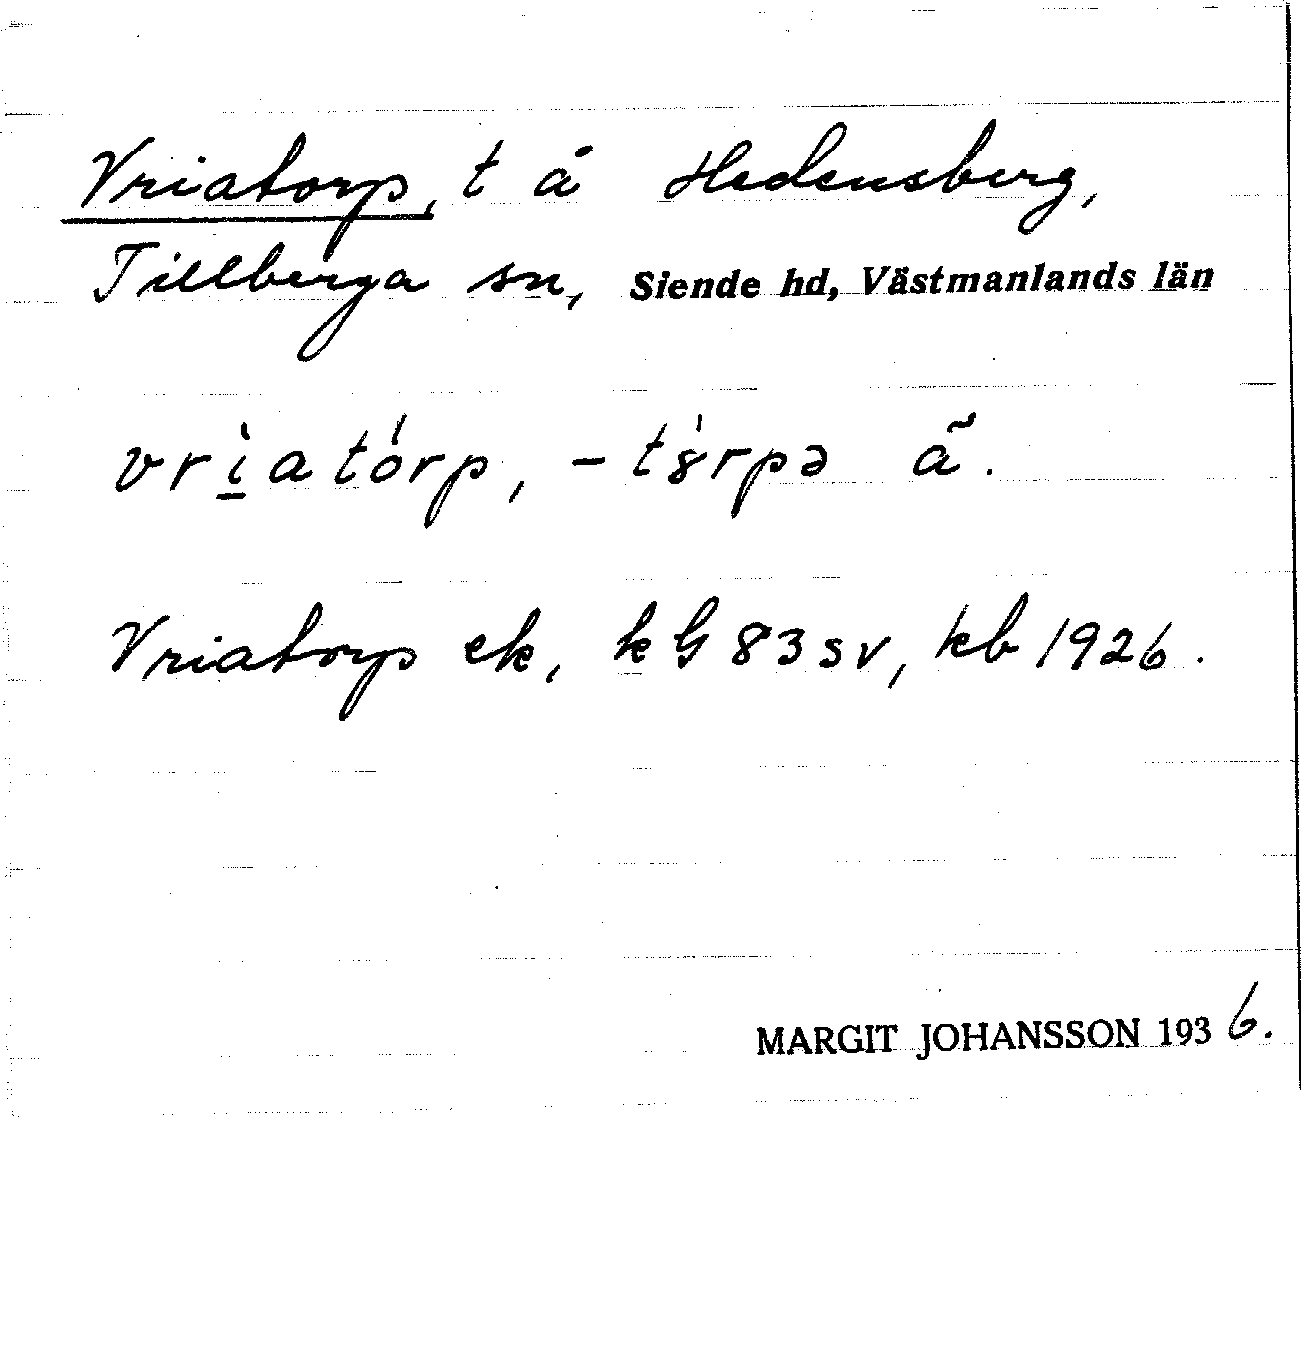 Vriatorp, t å Hedensberg,
Tillberga sn, Siende hd, Västmanlands län
vrì̲atórp, -tȣ́rpə ã.
Vriatorp ek, kG83sv, kb 1926.
MARGIT JOHANSSON 1936.